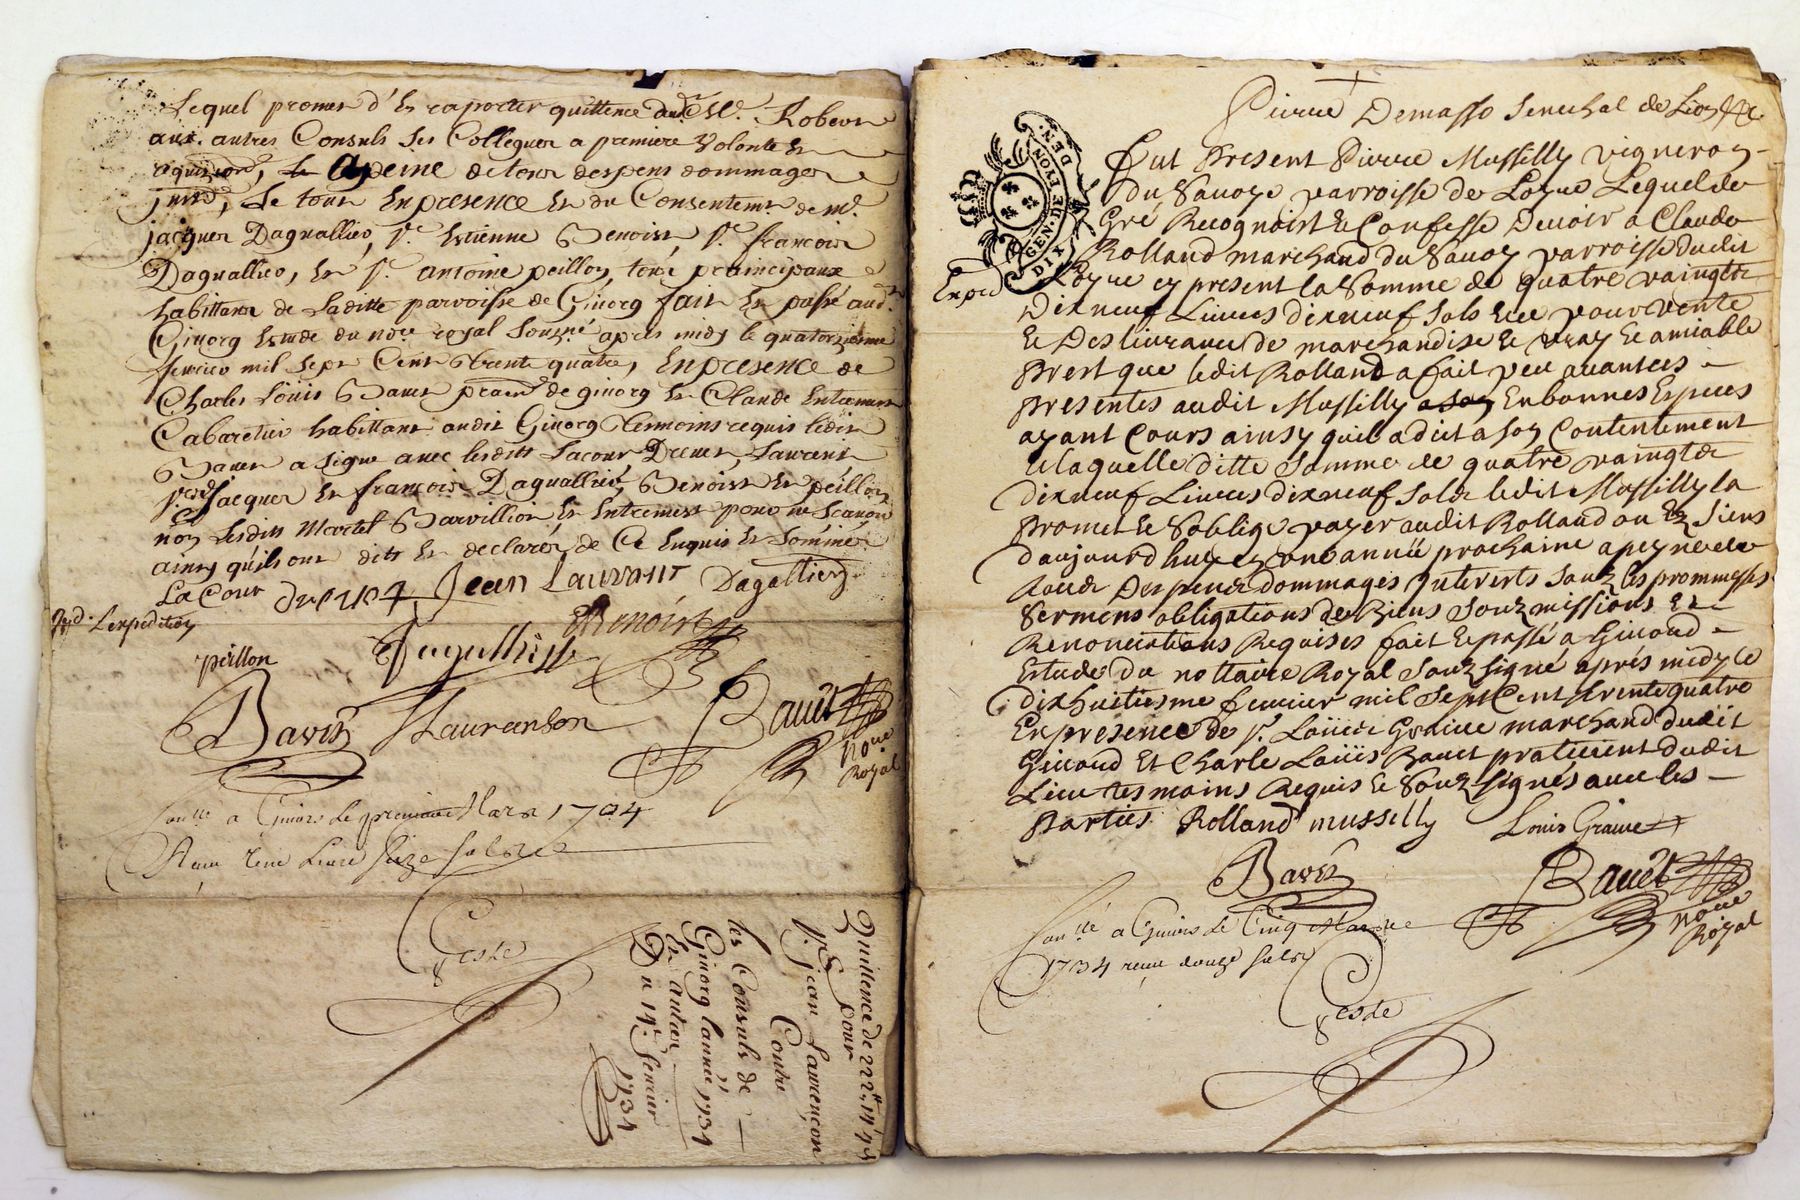 Lequel promet d'En raporter quittence dud. Sr. Robert
aux autres Consuls ses Collegues a premiere Volonté Et
a peine de tous despens dommages
Le tout En presence Et du Consentemt. de Mr.
jacques Dagnallier, sr. Estienne Benoist, sr. francois
Dagnallier, Et sr. antoine peillon, tous principaux
habittans de Laditte parroisse de Givorg fait Et passé aud.
Givorg Estude du nore. royal Souzne. apres midy le quatorzieme
fevrier mil sept Cent Trente quatre, En presence de
Charles Loüis Bauet praen. de givorg Et Claude Entremens
Cabaretier habittans audit Givorg tesmoins requis ledit
Bauet a signé avec lesdits Lacour Laurent
sr. Jacques Et francois Dagnallier, Benoist Et peillon
non lesdits Mortel Barvillion Et Entremens pour ne scavoir
ainsy qu'ils ont dits Et declarés de Ce Enquis Et Sommés
La Cour Jean Laurant Dagallier
Lexpedition
EBenoist
peillon
Bavet Lauranson Bauet
Nore
Royal
a Givors Le premier Mars 1734
Reçu Livre Seize sols
Geste
Quittence de 222ᵗᵗ 14s
pour
sr. jean Laurençon
Contre
les Consuls de
Givorg lannée 1734
et autres
Du 14e. fevrier
1734
Pierre Demasso Senechal de Lion
GEN. DE LYON
DIX DEN.
Exped
Fut Present Pierre Mussilly vigneron
du Vanoye parroisse de Loyre Lequel de
Gré Recognoist Et Confesse Devoir a Claude
Rolland marchand du Vanoy parroisse dudit
Loyre cy present la Somme de quatre vaingts
Dixneuf Livres dixneuf Sols Et ce pour vente
Et Deslivrance de marchandise Et vray Et amiable
Prest que ledit Rolland a fait peu avant ces
presentes audit Mussilly En bonnes Especes
ayant Cours ainsy quil a dit a son Contentement
Et laquelle ditte Somme de quatre vaingts
dixneuf Livres dixneuf Sols ledit Mussilly la
Promet Et Soblige payer audit Rolland ou Es Siens
daujourdhuy en une année prochaine a peyne de
tous Despens dommages Interests Souz les prommesses
Sermens obligations de Biens Souzmissions Et
Renonciations Requises fait Et passé a Givord
Estude du nottaire Royal Souzsigné aprés midy le
dixhuitiesme fevrier mil Sept Cent trente quatre
En presence de sr. Loüis Graive marchand dudit
Givord Et Charle Loüis Bauet praticient dudit
Lieu tesmoins Requis Et Souzsignés avec les
Parties Rolland mussilly Louis Graive
Bavet Bauet
Nore
Royal
a Givors Le Cinq Mars
1734 reçu douze sols
Geste